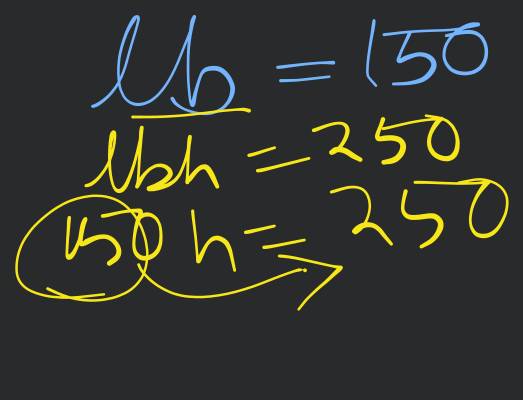 lb = 150
lbh = 250
150 h = 250